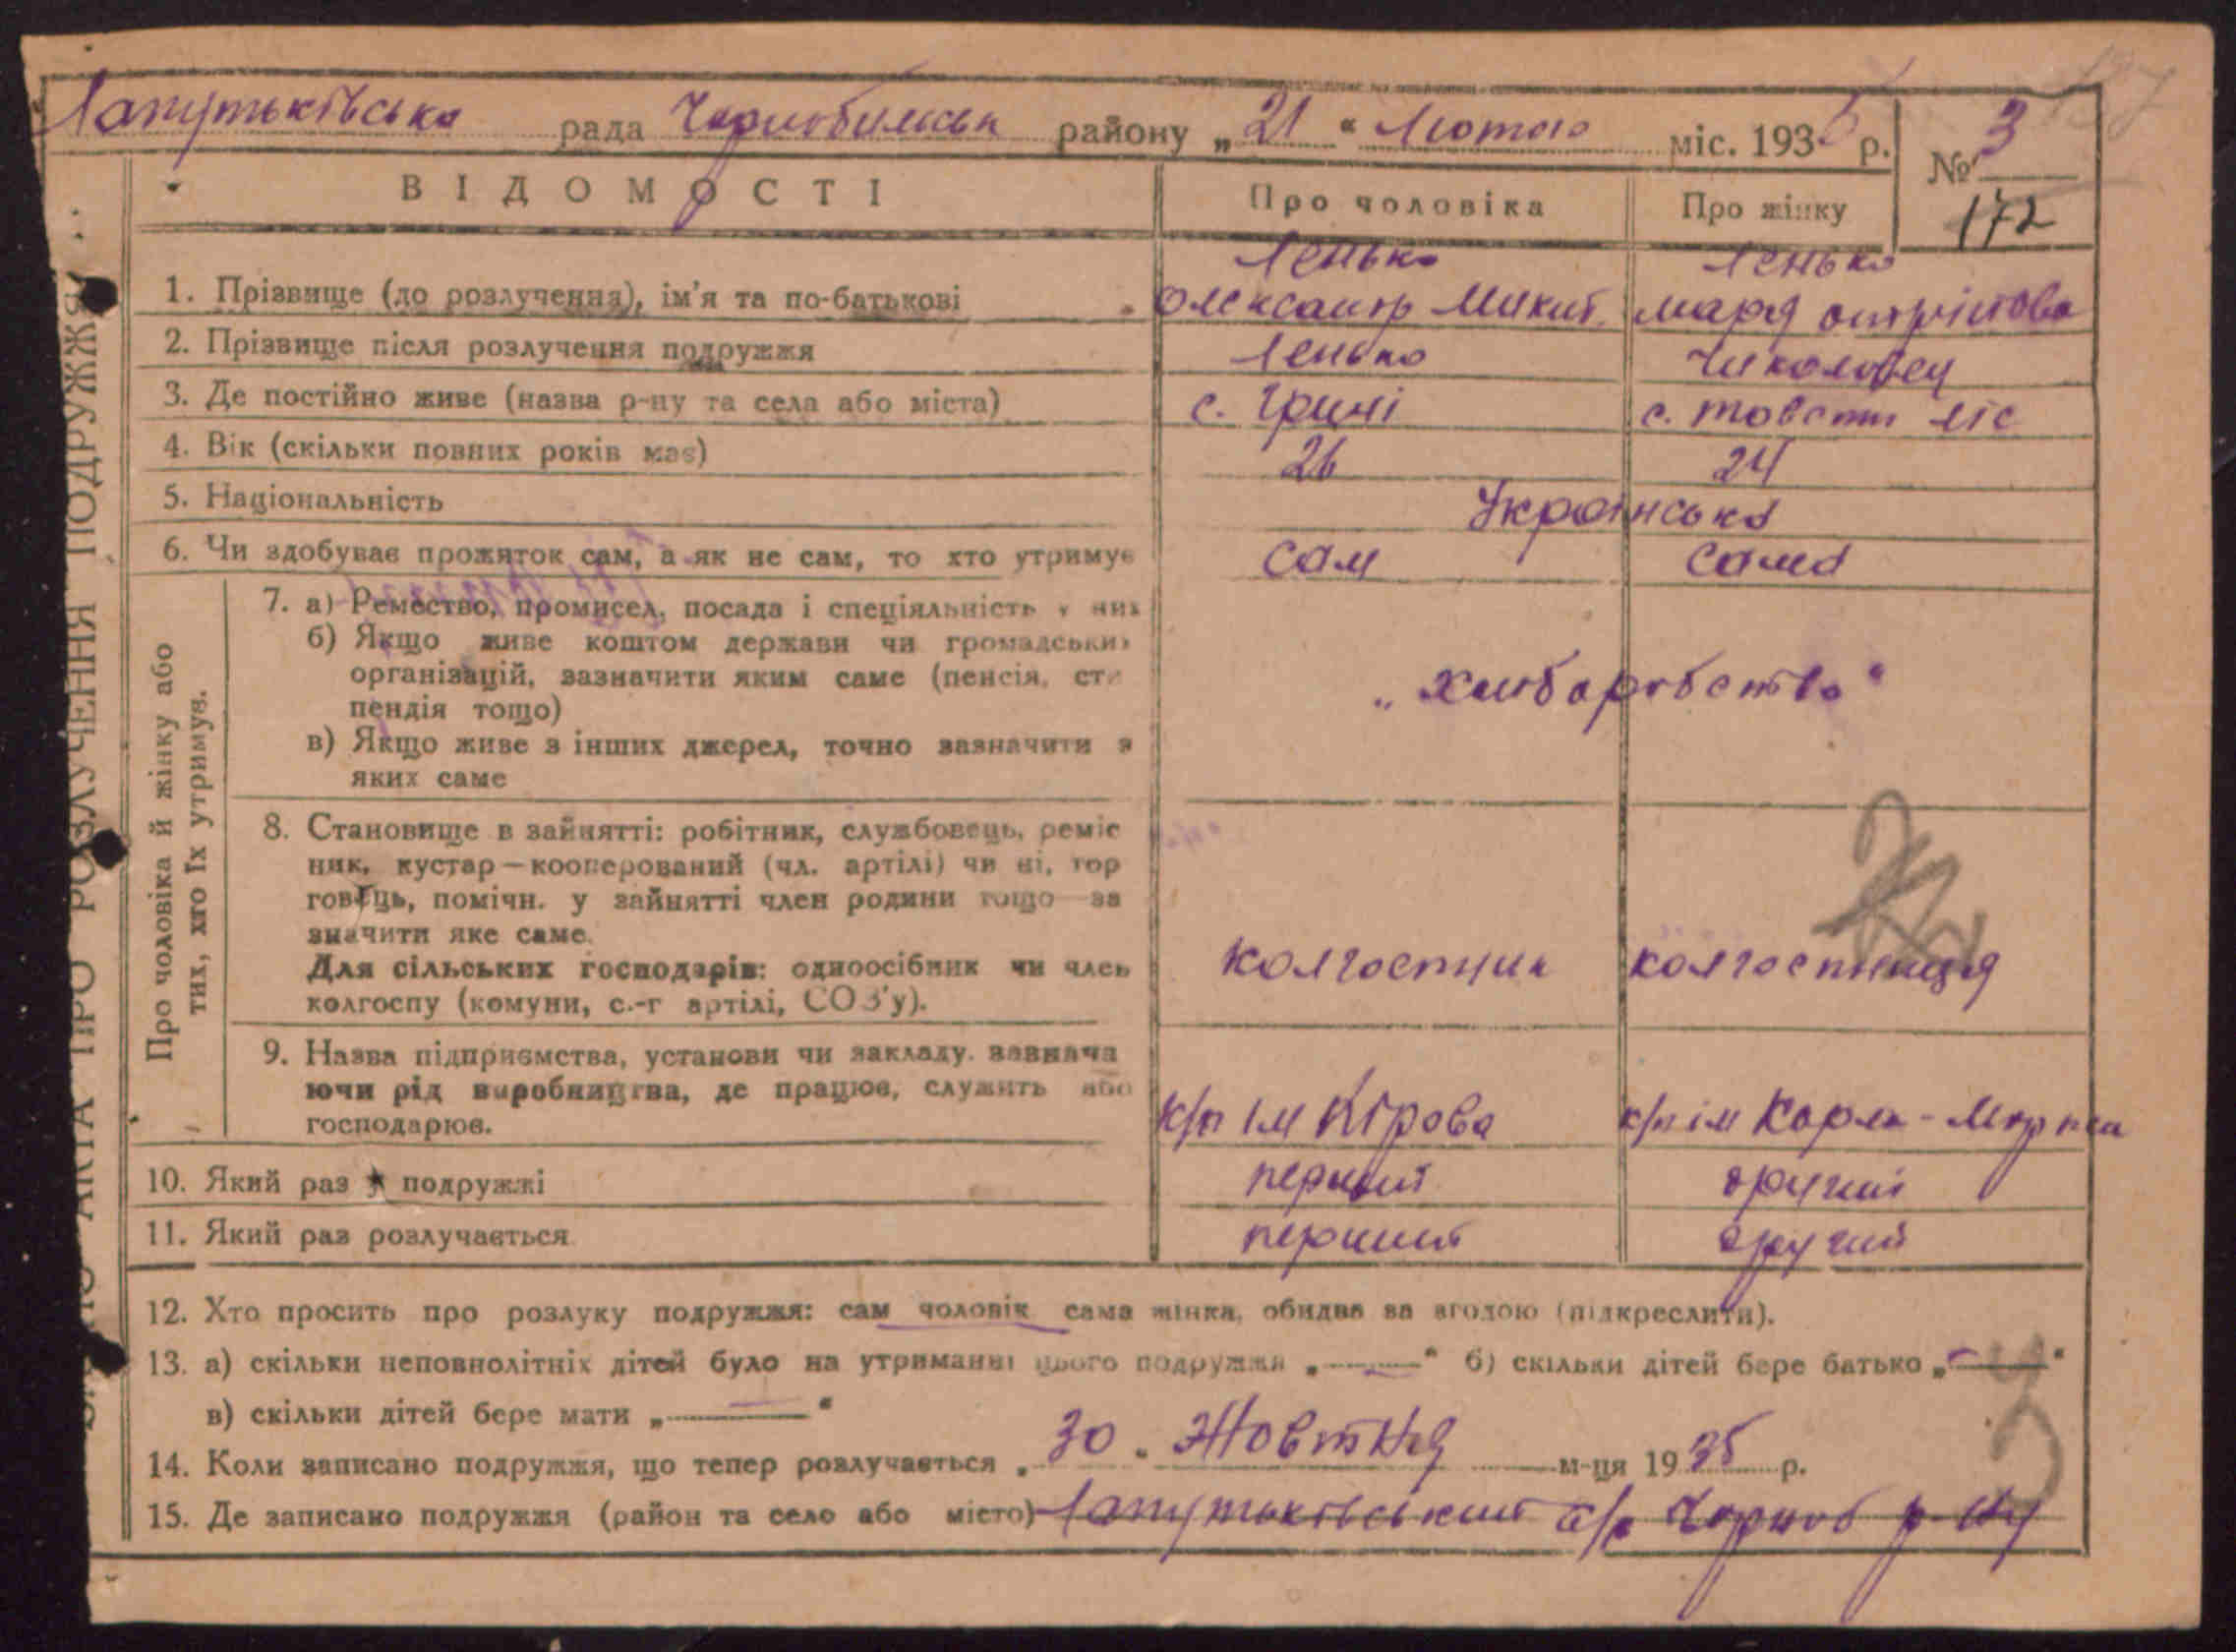 Лапутьківська рада Чорнобильськ району „21“ Лютого міс. 193 р.
№ 3
172
ВІДОМОСТІ Про чоловіка Про жінку
Ленько Ленько
1. Прізвище (до розлучення), ім'я та по-батькові Олександр Микит. Марія
2. Прізвище після розлучення подружжя Ленько Чиколовец
3. Де постійно живе (назва р-ну та села або міста) с. Грині с. Товсти ліс
4. Вік (скільки повних років має) 26 24
5. Національність Українська
6. Чи здобуває прожиток сам, а як не сам, то хто утримує сам сама
Про чоловіка й жінку або
тих, хто їх утримує.
7. а) Ремество, промисел, посада і спеціяльність у них
б) Якщо живе коштом держави чи громадських
організацій, зазначити яким саме (пенсія, сти
пендія тощо)
„хлібаробство“
в) Якщо живе з інших джерел, точно зазначити з
яких саме
8. Становище в зайнятті: робітник, службовець, реміс
ник, кустар—кооперований (чл. артілі) чи ні, тор
говець, помічн. у зайнятті член родини тощо—за
значити яке саме.
Для сільських господарів: одноосібник чи член колгостник колгостница
колгоспу (комуни, с.-г артілі, СОЗ'у).
9. Назва підприємства, установи чи закладу, зазнача
ючи рід виробництва, де працює, служить або
господарює. к/п ім Кірова к/п ім Карла-Маркса
10. Який раз у подружжі перший другий
11. Який раз розлучається перший другий
12. Хто просить про розлуку подружжя: сам чоловік сама жінка, обидва за згодою (підкреслити).
13. а) скільки неповнолітніх дітей було на утриманні цього подружжя „—“ б) скільки дітей бере батько „—“
в) скільки дітей бере мати „—“
14. Коли записано подружжя, що тепер розлучається „30“ Жовтня м-ця 1935 р.
15. Де записано подружжя (район та село або місто) Лапутьківський с/р Чорноб р-ну
АКТА ПРО РОЗЛУЧЕННЯ ПОДРУЖЖЯ